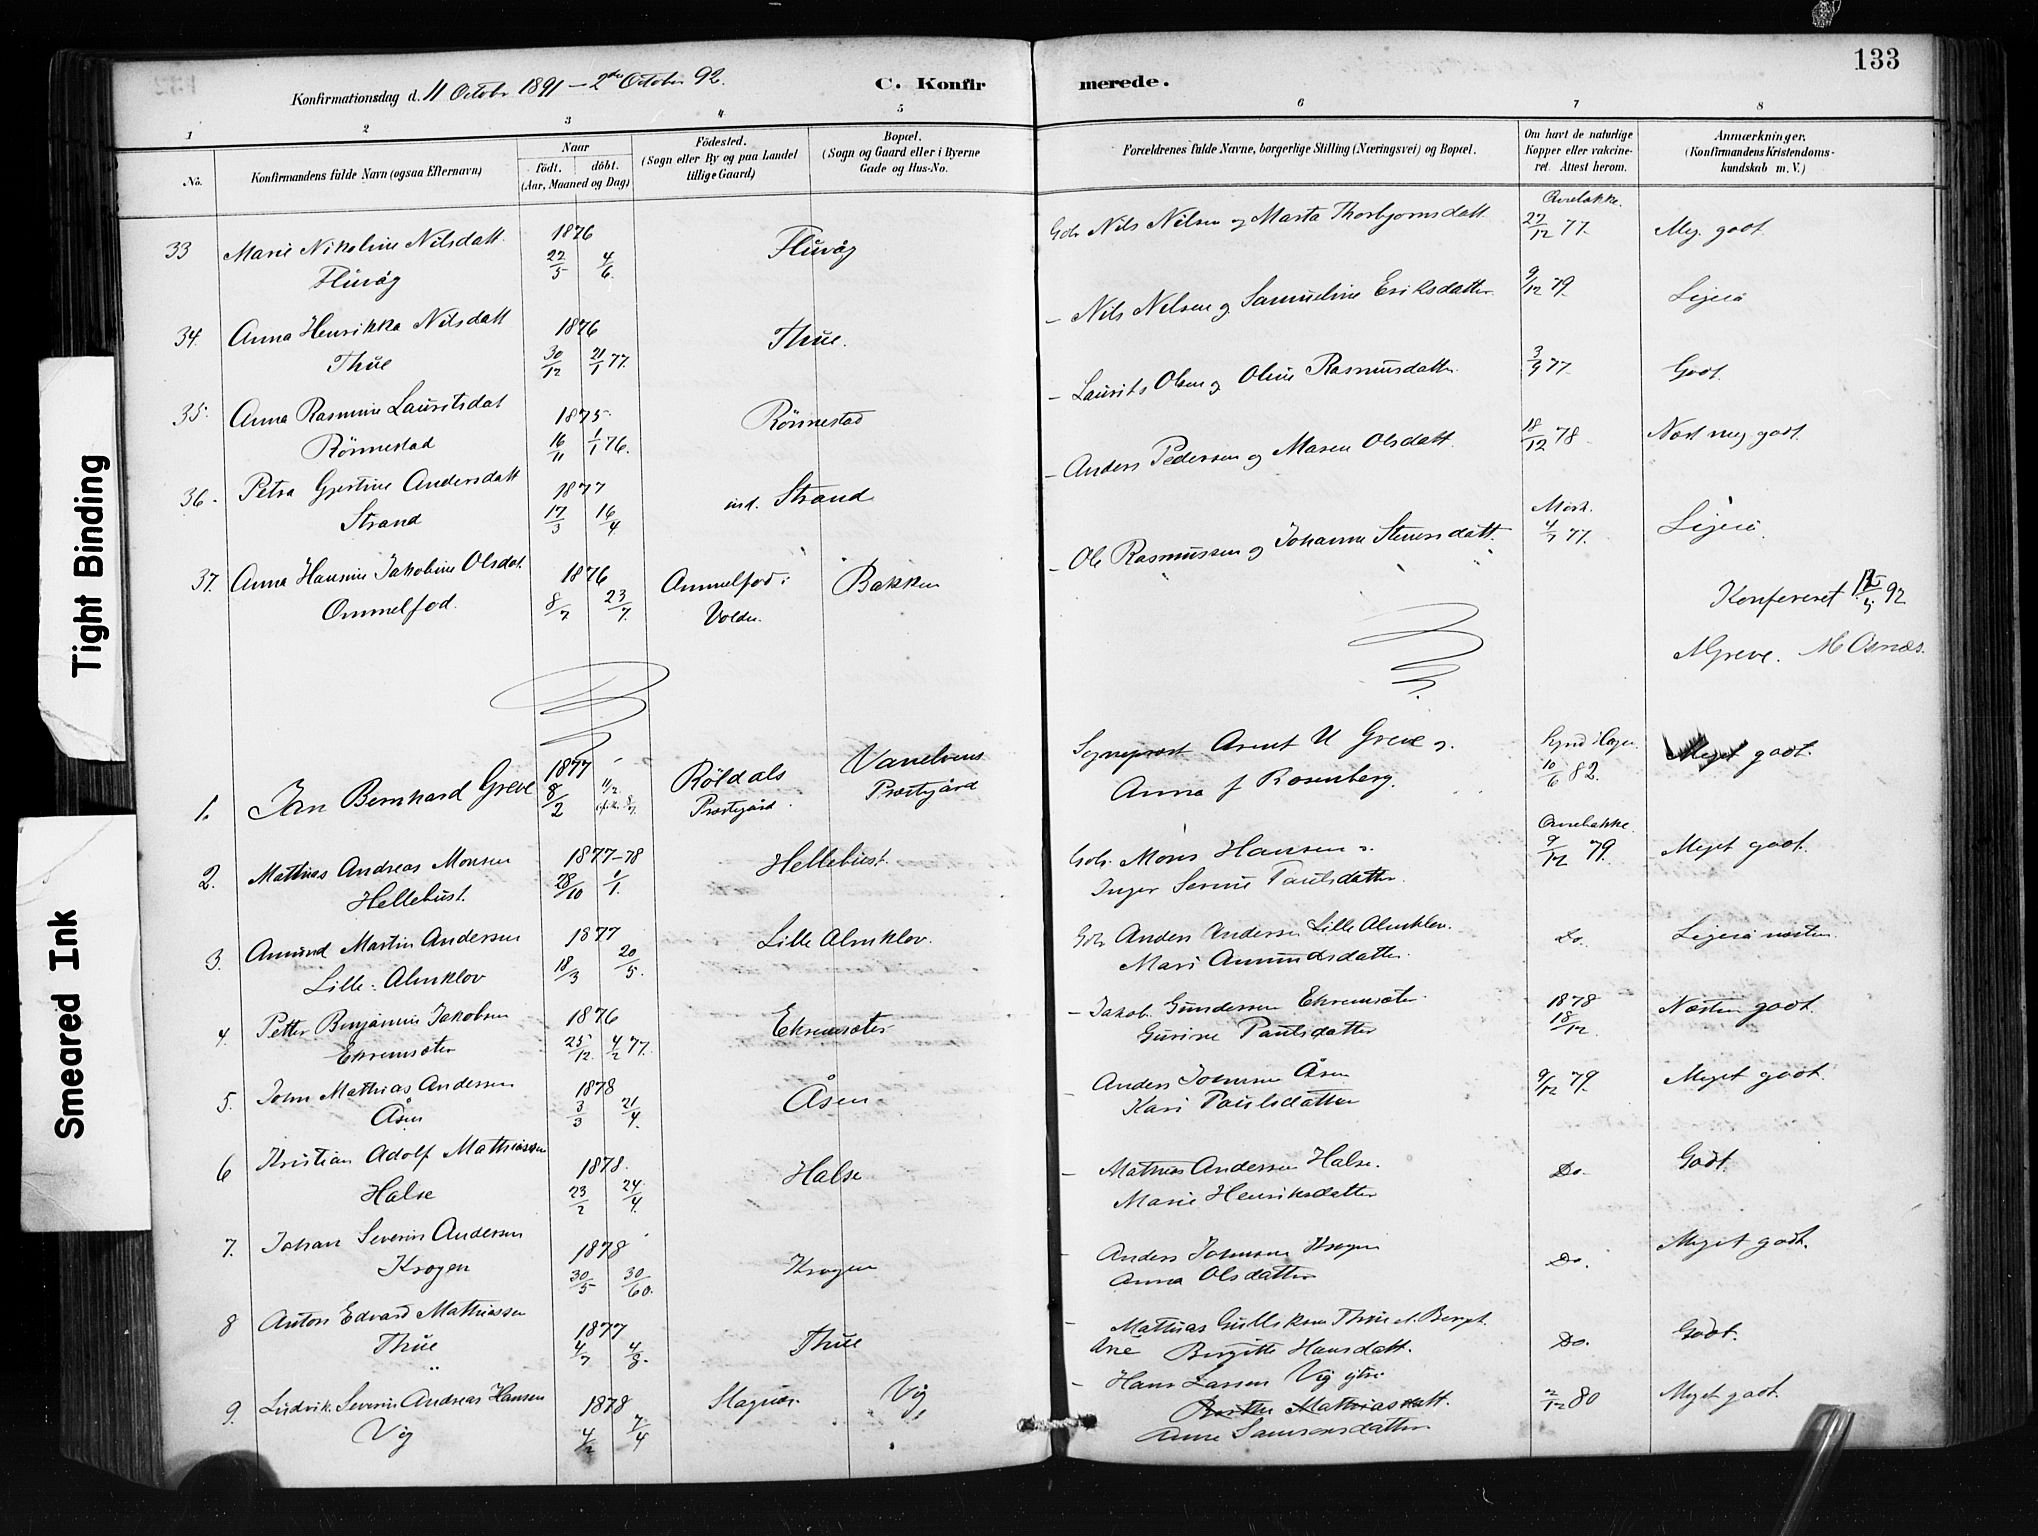 133
Konfirmationsdag d. 11 October 1891 – 2den October 92.
C. Konfirmerede.
1 2 3 4 5 6 7 8
No.
Konfirmandens fulde Navn (ogsaa Efternavn)
Naar
Födt. döbt.
(Aar, Maaned og Dag)
Födested.
(Sogn eller By og paa Landet tillige Gaard)
Bopæl.
(Sogn og Gaard eller i Byerne Gade og Hus-No.
Forældrenes fulde Navne, borgerlige Stilling (Næringsvei) og Bopæl.
Om havt de naturlige Kopper eller vakcineret. Attest herom.
Anmærkninger.
(Konfirmandens Kristendomskundskab m. V.)
33 Marie Nikoline Nilsdatt. 1876 Fluvåg Nils Nilsen og Marta Thorbjornsdatt 27/12 77. Meg. godt.
Fluvåg 22/5 4/6.
34. Anna Henrikka Nilsdatt 1876 Thue. – Nils Nilsen og Samueline Eriksdatter. 9/12 79. Ligeså
Thue 30/12 21/1 77.
35. Anna Rasmine Lauritsdat 1875 Rönnestad – Laurits Olsen og Oline Rasmusdatter. 3/9 77. Godt.
Rönnestad 16/11 1/1 76.
36. Petra Gjertine Andersdatt 1877 ind. Strand – Anders Pedersen og Maren Olsdatt. 18/12 78. Næst meg godt.
Strand 17/3 16/4
37. Anna Hansine Jakobine Olsdat. 1876 Ommelfod i Volden. Bakken – Ole Rasmussen og Johanne Steuersdatt. 4/7 77. Ligeså.
Ommelfod. 8/7 23/7.
Konfereret 92
AGreve. M Osnæs.
1. Jen Bernhard Greve 1877 8/2 Röldals Præstegård. Vanelvens Præstegård Sogneprest Arent U Greve og Anna f Rosenberg. 10/6 82. Meget godt.
2. Mathias Andreas Monsen 1877–78 Hellebust. Mons Hansen og Meget godt.
Hellebust. 28/10 1/1. Inger Serine Paulsdatter. 9/12 79.
3. Amund Martin Andersen 1877 Lille Almklov. Anders Andersen Lille Almklov. Do. Ligeså næsten.
Lille-Almklov 18/3 20/5. Mari Amundsdatter.
4. Petter Benjamin Jakobsen 1876 Ekremsæter – Jakob Gundersen Ekremsæter. 1878 Næsten godt.
Ekremsæter 25/12 4/2 77. Gurine Paulsdatter 18/12.
5. John Mathias Andersen 1878 Åsen – Anders Johnsen Åsen 9/12 79. Meget godt.
Åsen 3/3 21/4. Kari Paulsdatter
6 Kristian Adolf Mathiassen 1878. Halse – Mathias Andersen Halse. Do. Godt.
Halse 23/2 24/4. Marie Henriksdatter
7. Johan Severin Andersen 1878 Krogen – Anders Johnsen Krogen Do. Meget godt.
Krogen 30/5 30/60. Anna Olsdatter
8 Anton Edvard Mathiassen 1877 Thue – Mathias Gulliksen Thue Do. Godt.
Thue 4/7 4/8. Ane Birgitte Hansdatt.
9. Ludvik Severin Andreas Hansen 1878 Vig – Hans Larsen Vig ytre 2/12 80 Meget godt.
Vig 4/2 7/4 Mathiasdatt.
Anne Samsonsdatter
Tight Binding
Smeared Ink